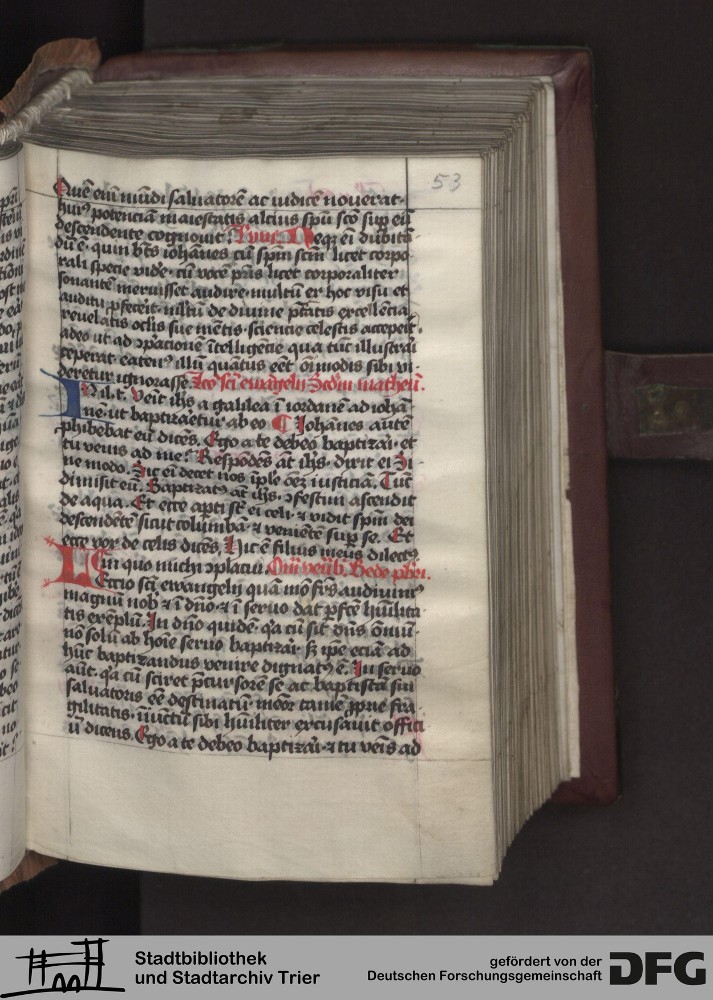 53
Quē em̄ mūdi saluatorē ac iudicē nouerat·
hui9 potenciā maiestatis altius spū sc̄o sup eū
descendente cognouit. Neqȝ em̄ dubitā
dū ē· quin bt̄s iohānes cū spm̄ scm̄ licet corpo
rali specie vidē· cū voce pr̄is licet corporaliter
sonante meruisset audire· multū ex hoc visu et
auditu ꝓfecerit· m̄ltū de diuine ptātis excellēcia
reuelatis oclis sue mētis· sciencie celestis acceperit·
adeo ut ad ꝯparacionē ītelligēcie qua tūc illustrari
ceperat· eaten9 illū quātus eēt oī modis sibi vi·
deretur ignorasse. Lc̄o sci ewāgelij Scdm̄ matheū.
In il. t. Veīt ih̄s a galilea ī iordanē ad iohā·
nē· ut baptizaretur ab eo Iohānes autē
phibebat eū dicēs. Ego a te debeo baptizari· et
tu venis ad me? Respōdēs āt ih̄s· dixit ei Si·
ne modo. Sic em̄ decet nos īple oēȝ iusticiā. Tūc
dimisit eū. Baptizat9 āt ih̄s· ꝯfestim ascendit
de aqua. Et ecce apti sūt ei celi· ⁊ vidit spm̄ dei
descendētē sicut columbā· ⁊ veniētē sup se. Et
ecce vox de celis dicēs. Hic ē filius meus dilect9
in quo michi ꝯplacui. Om̄ ven̄b. Bede pbr̄i.
Leccio sci ewangelij quā mō fr̄s audiuim9
magnū nob ⁊ ī dn̄o ⁊ ī seruo dat pfcē hūilita·
tis exēplū. In dn̄o quidē· qa cū sit dn̄s ōniū·
nō solū ab hoīe seruo baptizari· sȝ ipe eciā ad
hūc baptizandus venire dignat9 ē. In seruo
aūt· qa cū sciret p̄cursorē se ac baptistā sui
saluatoris eē destinatū· meōr tamē ꝓprie fra·
gilitatis· iniūctū sibi hūiliter excusauit offici
ū dicens. Ego a te debeo baptizari· ⁊ tu veīs ad
Stadtbibliothek
und Stadtarchiv Trier
gefördert von der
Deutschen Forschungsgemeinschaft
DFG